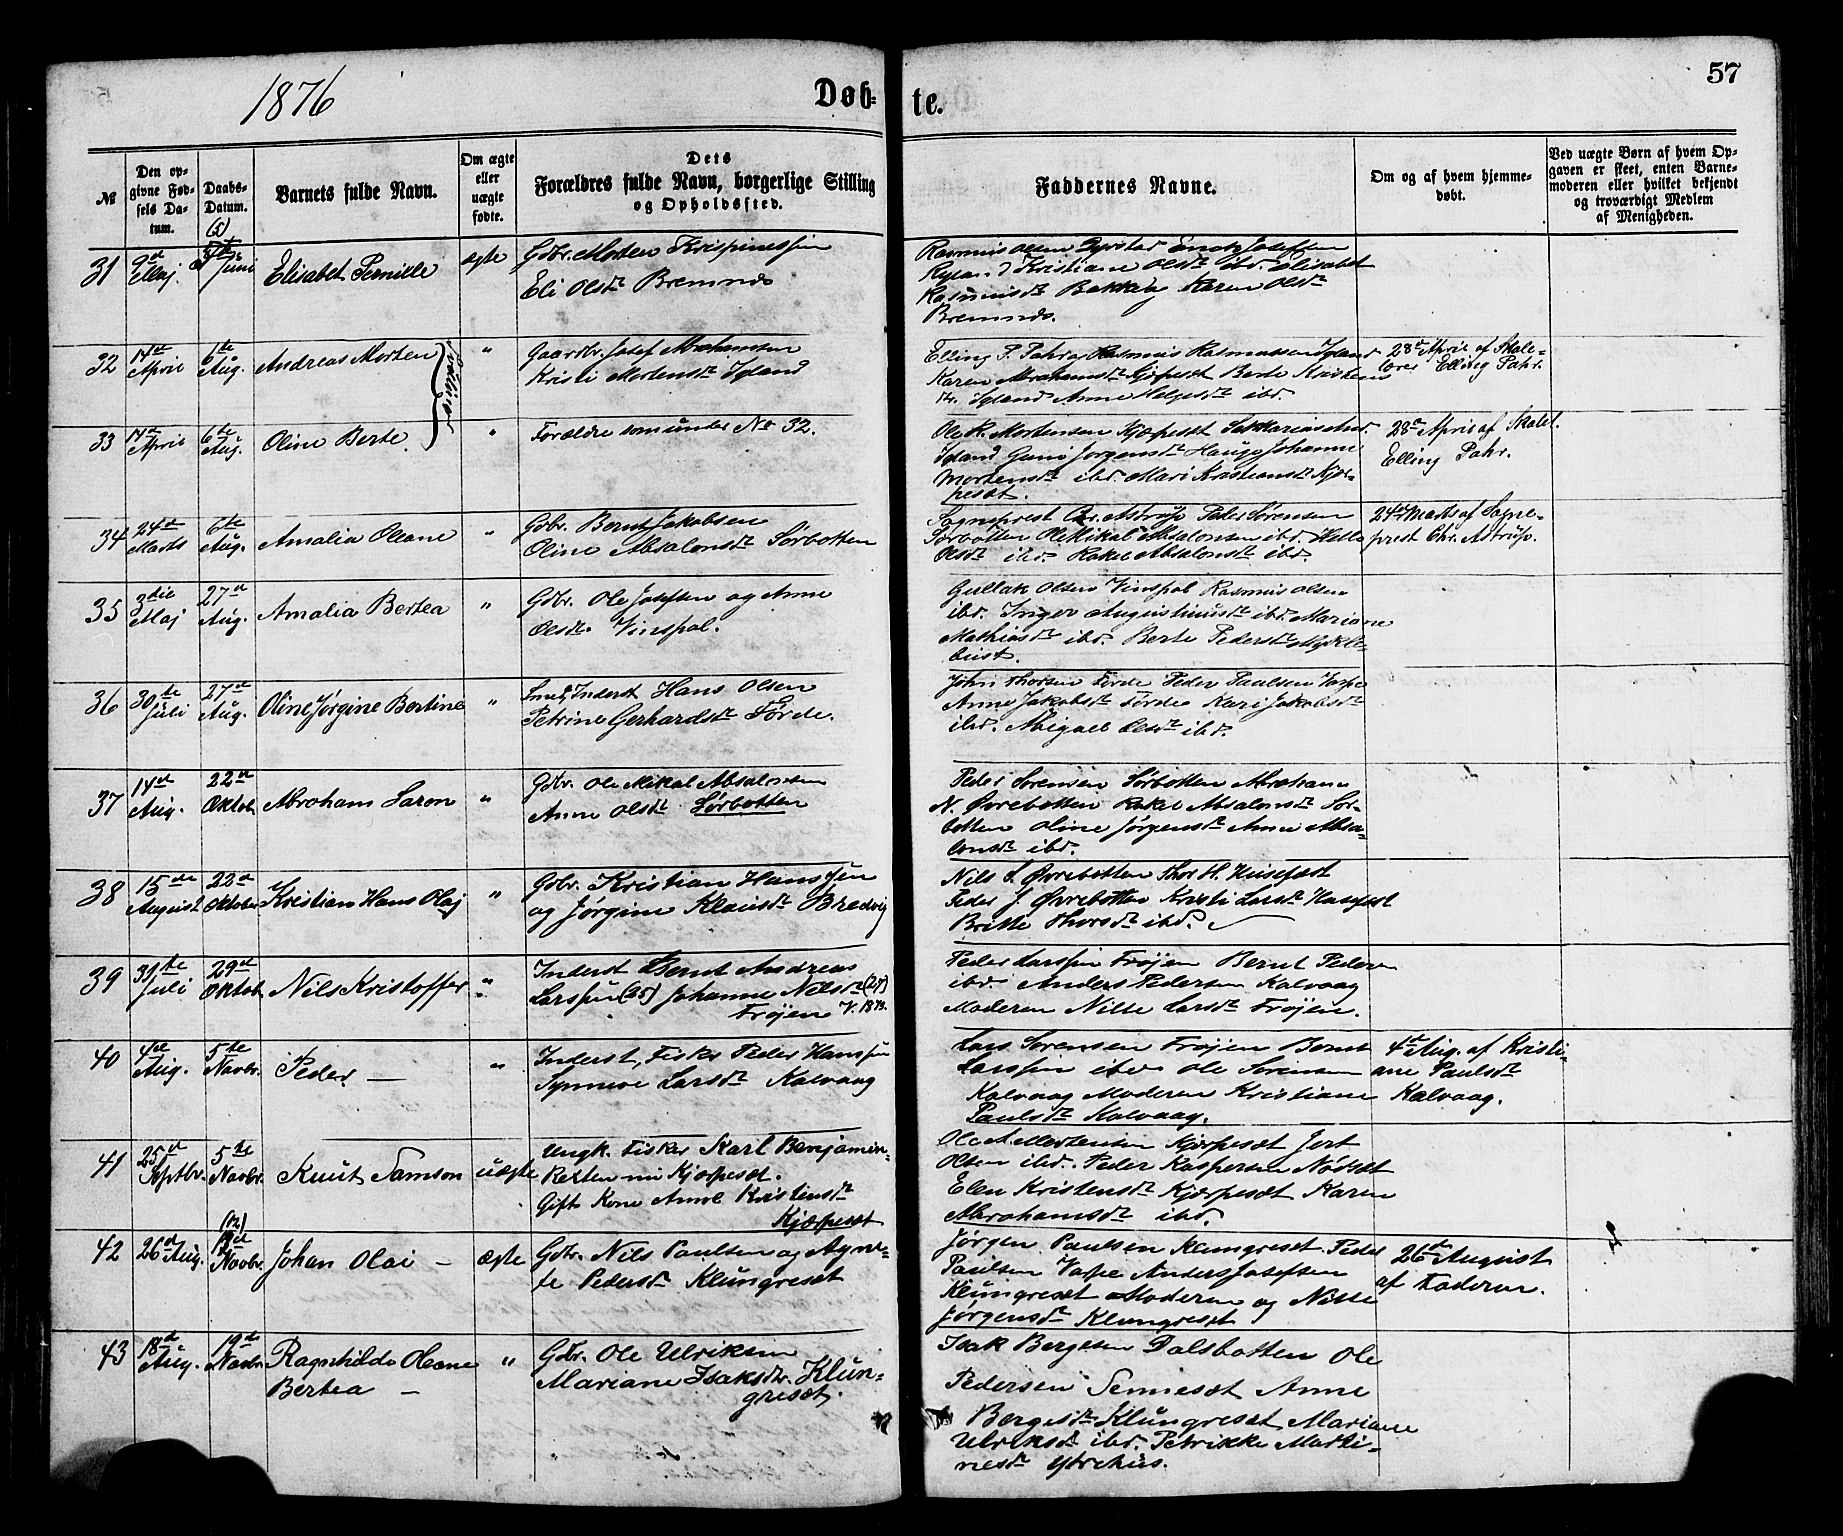 1876
Døb-
te.
57
№
Den op-
givne Fød-
sels Da-
tum.
Daabs-
Datum.
Barnets fulde Navn.
Om ægte
eller
uægte
fødte.
Dets
Forældres fulde Navn, borgerlige Stilling
og Opholdssted.
Faddernes Navne.
Om og af hvem hjemme-
døbt.
Ved uægte Børn af hvem Op-
gaven er skeet, enten Barne-
moderen eller hvilket bekjendt
og troværdigt Medlem
af Menigheden.
31
9d
Maj.
Juni
Elisabet Pernille
ægte
Gdbr. Morten Krispinussen
Eli Olsdr Bremnes
Rasmus Olsen Enok Josefsen
Kristiane Olsdr ibd. Elisabet
Rasmusdr Karen Olsdr
Bremnes.
32
14d
April
6te
Aug.
Andreas Morten
Tvilling
"
Gaardbr. Josef Abrahamsen
Kristi Mortensdr Igland
Elling P. Rasmus Rasmussen Igland
Karen Abrahamsdr Kjærpeset Berte Kristens
dr. Igland Anne Helgesdr ibd.
28d April af Skole-
lærer Elling Pahr.
33
14d
April
6te
Aug.
Oline Berte.
"
Forældre som under No 32.
Ole K. Mortensen Kjærpeset
Igland Guni Jørgensdr Hauge Johanne
Mortensdr ibd. Mari Kristiansdr Kjær-
peset.
28d April af Skolel.
Elling Pahr.
34
24d
Marts
6te
Aug.
Amalia Oleane
"
Gdbr. Bernt Jakobsen
Oline Absalonsdr Sørbotten
Sogneprest Chr. Astrup Peder Sørensen
Sørbotten Ole Mikal Absalonsen ibd.
Olsdr ibd. Rakel Absalonsdr ibd.
24d Marts af Sogne-
prest Chr. Astrup.
35
3die
Maj
27d
Aug.
Amalia Bertea
"
Gdbr. Ole Josefsen og Anne
Olsdr. Vinspol.
Gullak Olsen Vinspol Rasmus Olsen
ibd. Inger Augustinusdr ibd. Mariane
Mathiasdr ibd. Berte Pedersdr Mykle-
bust.
36
30te
Juli
27d
Aug.
Oline Jørgine Bertine
"
Inderst Hans Olsen
Petrine Gerhardsdr Førde.
John Thorsen Førde Peder Paulsen
Anne Jakobsdr Førde Kari Jakobsdr
ibd. Abigael Olsdr ibd.
37
14d
Aug.
22d
Oktob.
Abraham Saron
"
Gdbr. Ole Mikal Absalonsen
Anne Olsdr Sørbotten
Peder Sørensen Sørbotten Abraham
N. Øvrebotten Rakel Absalonsdr Sør-
botten Oline Jørgensdr Anne Absa-
lonsdr ibd.
38
15de
August
22d
Oktober
Kristian Hans Olaj
"
Gdbr. Kristian Hanssen
og Jørgine Klausdr Bredvig
Nils S. Øvrebotten Thor H. Husefæst
Peder J. Øvrebotten Kristi Larsdr Husefæst
Britte Thorsdr ibd.
39
31te
Juli
29d
Oktob.
Nils Kristoffer
"
Inderst Bernt Andreas
Larssen (25) Johanne Nilsdr (28)
Frøjen V. 1873.
Peder Larssen Frøjen Bernt Pedersen
ibd. Anders Pedersen Kalvaag
Moderen Nille Larsdr Frøjen.
40
4d
Aug.
5te
Novbr.
Peder —
"
Inderst, Fisker Peder Hanssen
Synnøve Larsdr Kalvaag
Lars Sørensen Frøjen Bernt
Larssen ibd. Ole Sørensen
Kalvaag Moderen Kristiane
Paulsdr Kalvaag.
4d Aug. af Kristi-
ane Paulsdr
Kalvaag.
41
25d
Septbr.
5te
Novbr.
Knut Samson
uægte
Ungk. Fisker Karl Benjamin
Kjærpeset.
Gift Kone Anne Kristensdr
Kjærpeset
Ole A. Mortensen Kjærpeset
Olsen ibd. Peder Kaspersen Nødset
Elen Kristensdr Kjærpeset Karen
Abrahamsdr ibd.
42
26d Aug.
(12)
Novbr.
Johan Olai —
ægte
Gdbr. Nils Paulsen og Agne-
te Pedersdr Klungreset
Jørgen Paulsen Klungreset Peder
Paulsen Anders Josefsen
Klungreset Moderen og Nille
Jørgensdr Klungreset
26d August
af Faderen.
43
18d
Aug.
19d
Novbr.
Ragnhilda Oleane
Bertea —
"
Gdbr. Ole Ulriksen
Mariane Isaksdr. Klun-
greset.
Isak Bergesen Dalsbotten Ole
Pedersen Sennesæt Anne
Bergesdr Klungreset Mariane
Ulriksdr ibd. Petrikke Marti-
nesdr Ytrehus.